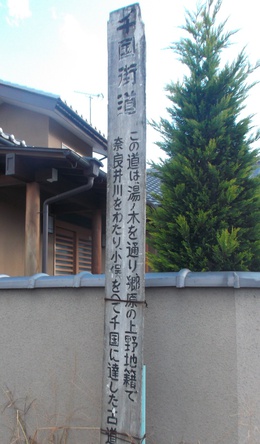 千国街道
この道は湯ノ木を通り郷原の上野地籍で
奈良井川をわたり、小俣をへて千国に達した古道